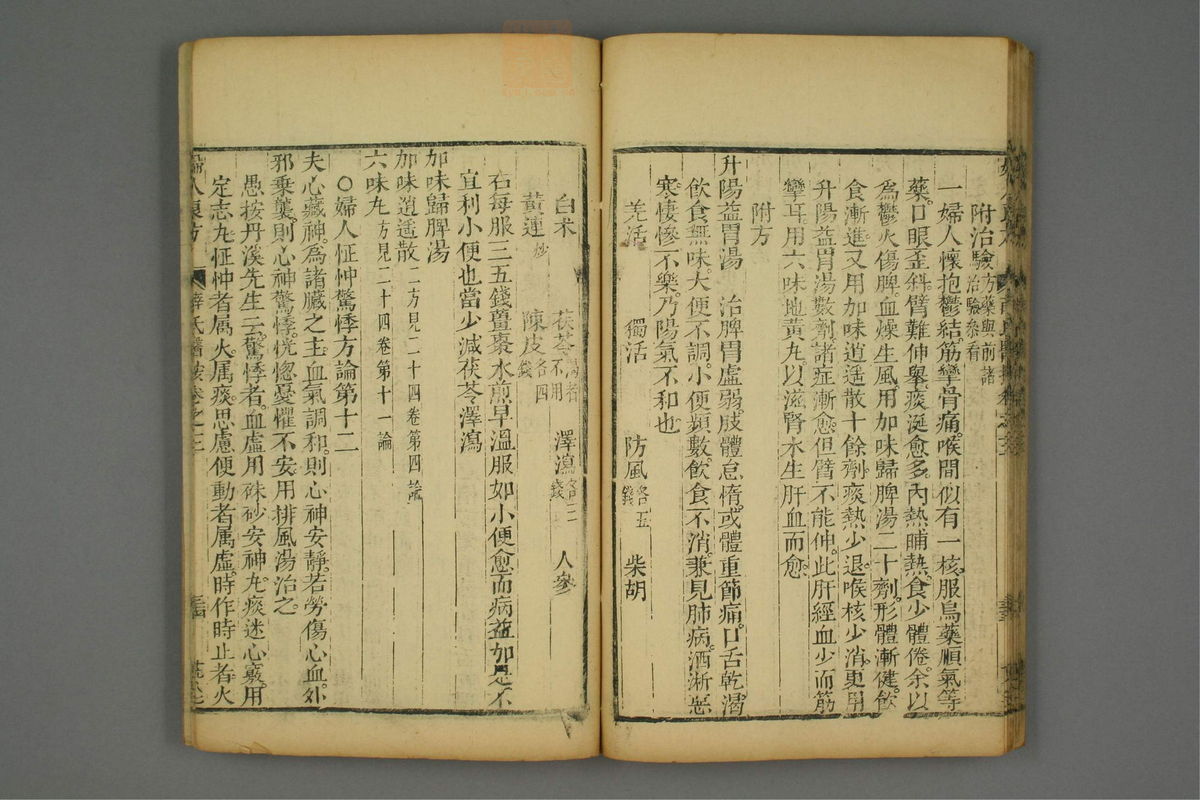 附治驗方藥與前諸治驗叅看
一婦人懷抱鬱結筋攣骨痛喉間似有一核服烏藥順氣等
藥口眼歪斜臂難伸舉痰涎愈多內熱晡熱食少體倦余以
爲鬱火傷脾血燥生風用加味歸脾湯二十劑形體漸健飲
食漸進又用加味逍遥散十餘劑痰熱少退喉核少消更用
升陽益胃湯數劑諸症漸愈但臂不能伸此肝經血少而筋
攣耳用六味地黃丸以滋腎水生肝血而愈
附方
升陽益胃湯 治脾胃虛弱肢體怠惰或體重節痛口舌乾渴
飲食無味大便不調小便頻數飲食不消兼見肺病洒淅惡
寒悽慘不樂乃陽氣不和也
羌活 獨活 防風各五錢 柴胡
白术 茯苓渴者不用 澤瀉各三錢 人參
黃連炒 陳皮各四錢
右每服三五錢薑棗水煎早溫服如小便愈而病益加是不
宜利小便也當少減茯苓澤瀉
加味歸脾湯
加味逍遥散二方見二十四卷第四論
六味丸方見二十四卷第十一論
○婦人怔忡驚悸方論第十二
夫心藏神爲諸臟之主血氣調和則心神安靜若勞傷心血外
邪乘襲則心神驚悸恍惚憂懼不安用排風湯治之
愚按丹溪先生云驚悸者血虛用硃砂安神丸痰迷心竅用
定志丸怔忡者属火属痰思慮便動者属虛時作時止者火
人良方 薛氏醫按卷之三